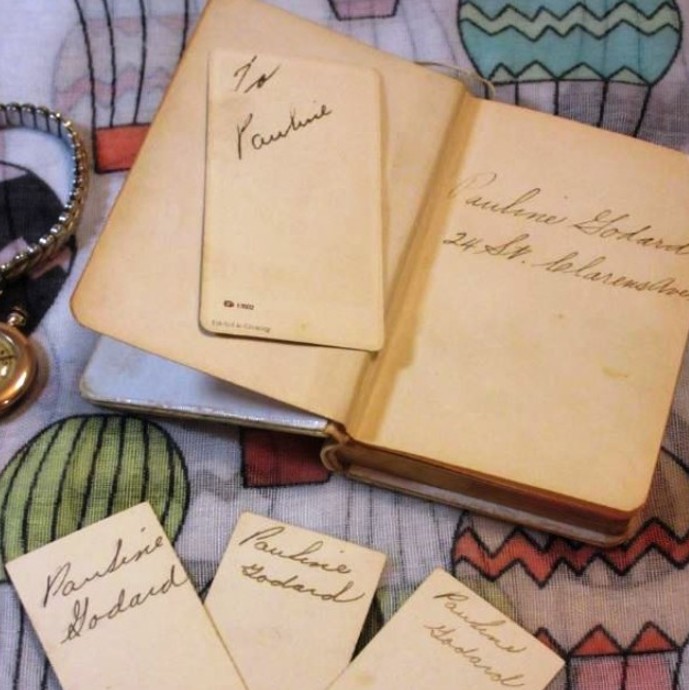 To
Pauline
Pauline Godard
24 St. Clarens Ave
Pauline
Godard
Pauline
Godard
Pauline
Godard